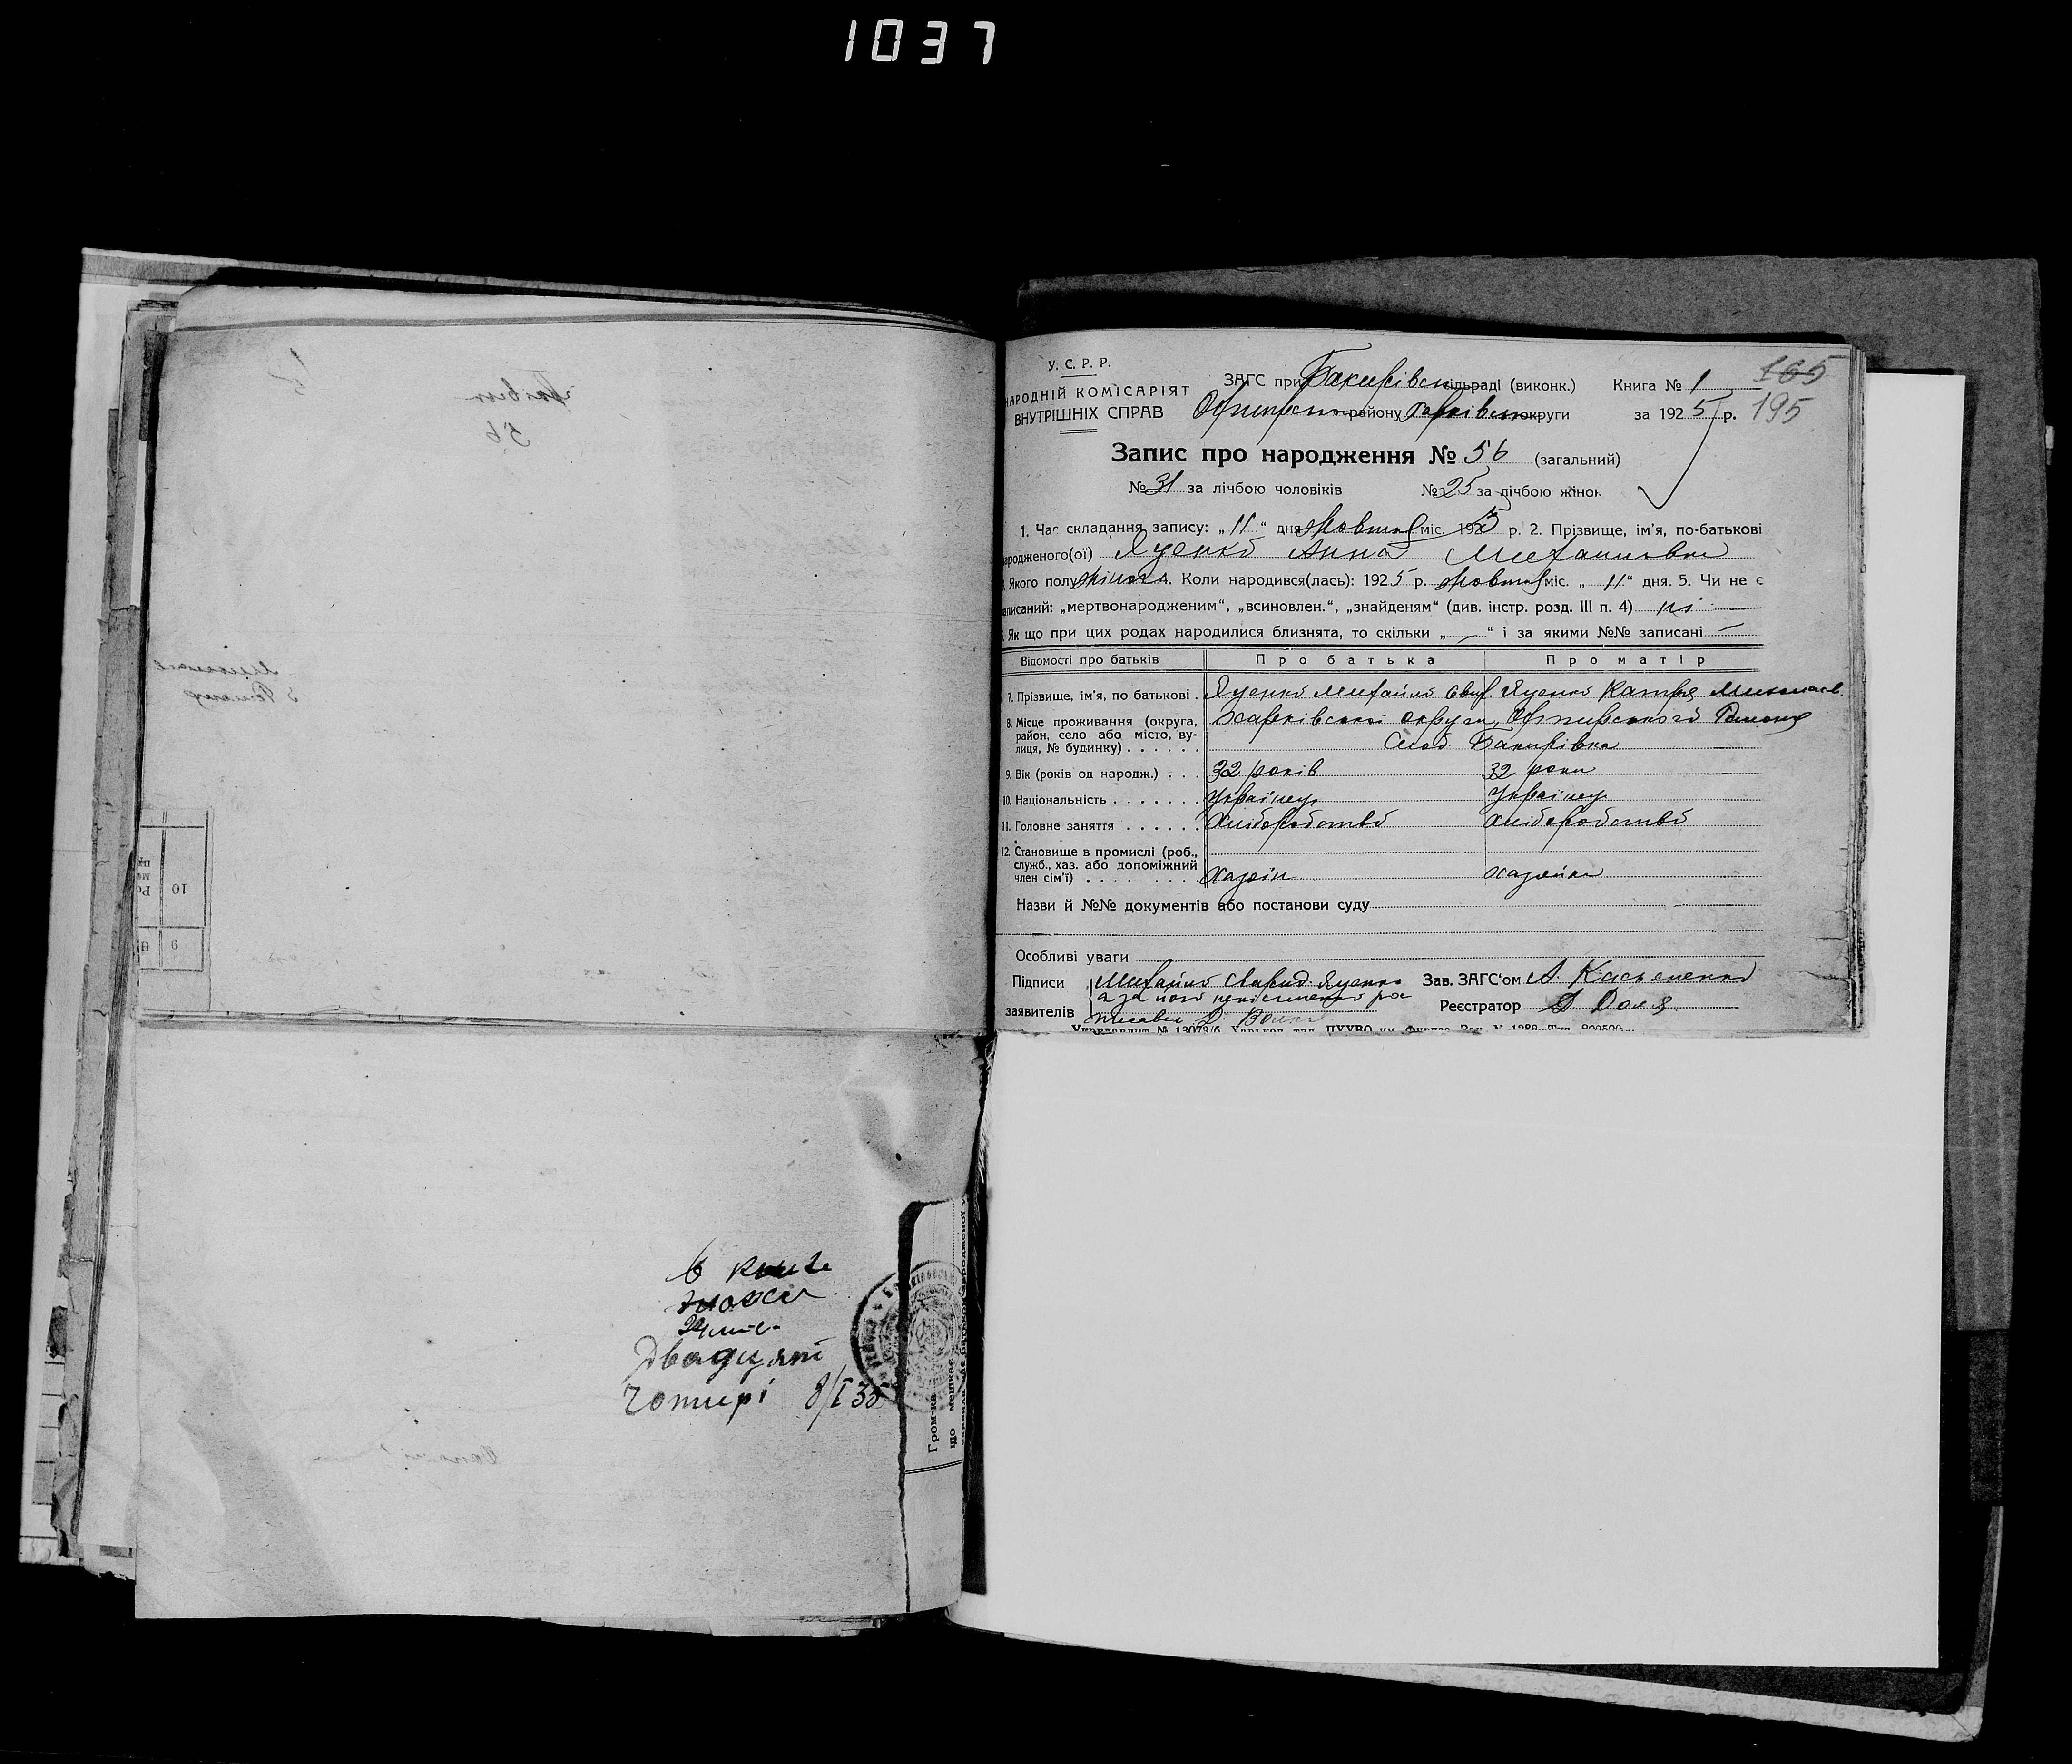 1037
У. С. Р. Р.
НАРОДНІЙ КОМІСАРІЯТ
ВНУТРІШНІХ СПРАВ
ЗАГС при Бакирівськ сільраді (виконк.)
Охтирськ району Харківськ округи
Книга № 1
за 1925 р.
165
195
Запис про народження № 56 (загальний)
№ 31 за лічбою чоловіків № 25 за лічбою жінок
1. Час складання запису: „11“ дня Жовтня міс. 1925 р. 2. Прізвище, ім'я, по-батькові
народженого(ої) Яценко Анна Михайловна
3. Якого полу жіноч 4. Коли народився(лась): 1925 р. жовтня міс. „11“ дня. 5. Чи не є
записаний: „мертвонародженим“, „всиновлен.“, „знайденям“ (див. інстр. розд. III п. 4) ні
6. Як що при цих родах народилися близнята, то скільки „-“ і за якими №№ записані —
Відомості про батьків Про батька Про матір
7. Прізвище, ім'я, по батькові . Яценко Михайло Яценко Катря Миколаєв.
8. Місце проживання (округа, район, село або місто, вулиця, № будинку) . . . . . . Харківської округи, Охтирського Району
Слоб. Бакирівка
9. Вік (років од народж.) . . . 32 років 32 роки
10. Національність . . . . . . . Українец Українец
11. Головне заняття . . . . . . Хліборобство Хліборобство
12. Становище в промислі (роб., служб., хаз. або допоміжний член сім'ї) . . . . Хазяін хазяйка
Назви й №№ документів або постанови суду
Особливі уваги
Підписи заявителів Михайло Яценко
а за його
Зав. ЗАГС'ом А.
Реєстратор Д Доля
В книзі
Двадцят
чотирі 8/I 35
Гром-ка
що мешкає
10
9